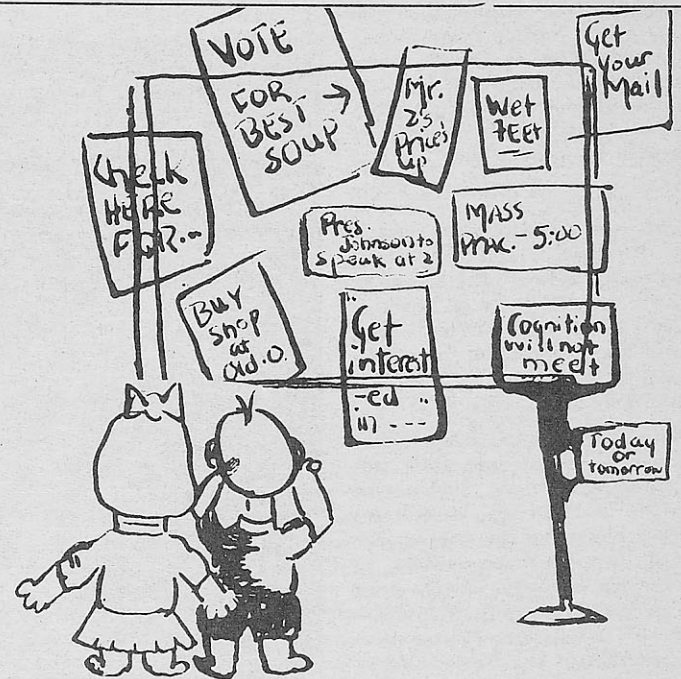 VOTE
FOR
BEST
SOUP
Mr.
Z's
Prices
up
Wet
FEET
Get
Your
Mail
Check
HERE
FOR...
Pres.
Johnson to
speak at 2
MASS
PRAC. - 5:00
BUY
Shop
at
Old. O.
Get
interest
-ed
in ---
Cognition
will not
meet
Today
or
tomorrow